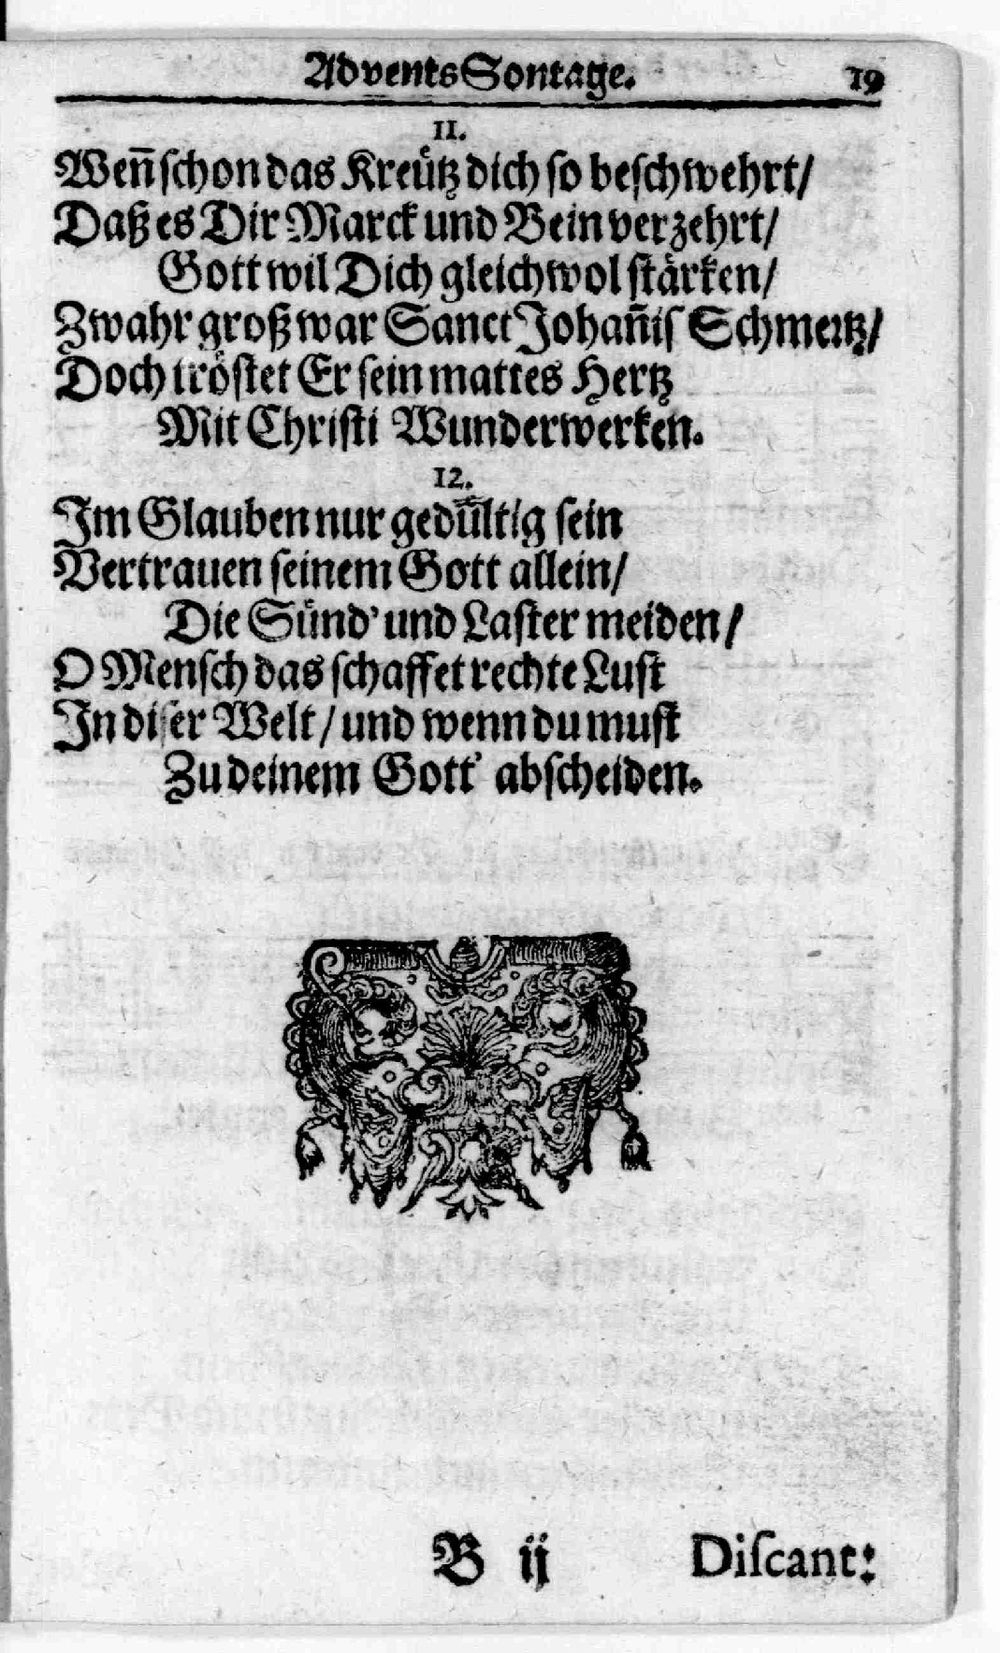 AdventsSontage. 19
11.
Weñ schon das Kreütz dich so beschwehrt/
Daß es Dir Marck und Bein verzehrt/
Gott wil Dich gleichwol stärken/
Zwahr groß war Sanct Johañis Schmertz/
Doch tröstet Er sein mattes Hertz
Mit Christi Wunderwerken.
12.
Im Glauben nur gedültig sein
Vertrauen seinem Gott allein/
Die Sünd' und Laster meiden/
O Mensch das schaffet rechte Lust
In diser Welt/ und wenn du must
Zu deinem Gott' abscheiden.
B ij Discant: